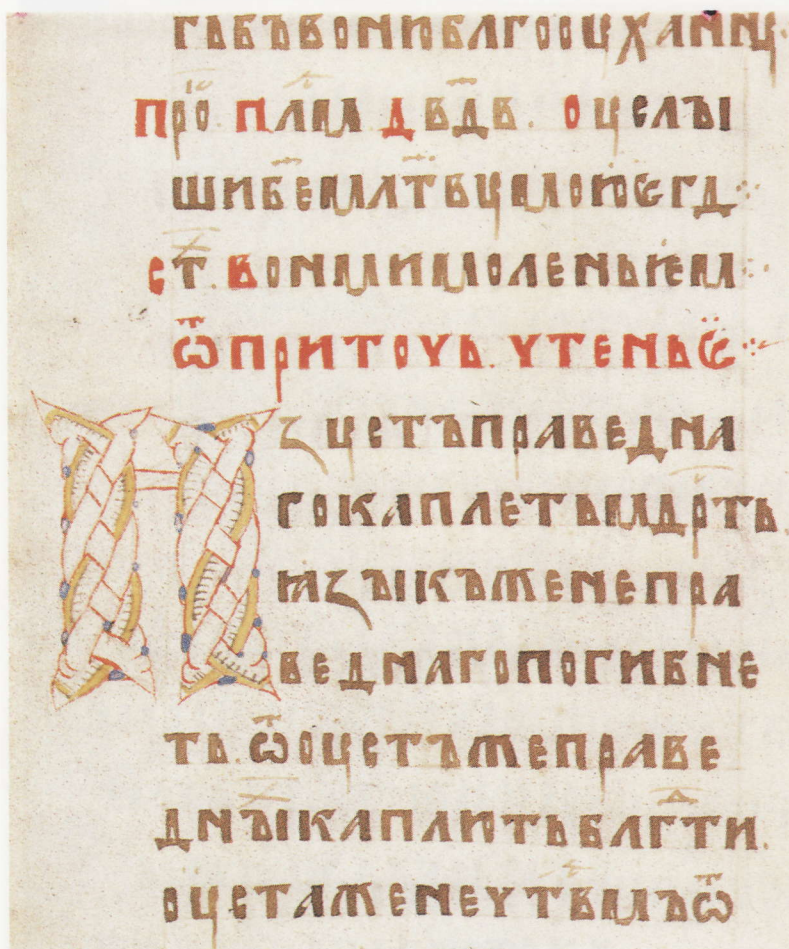 гьвъвонюблгооуханну
про. плма дв҃дв. оуслꙑ
шибем҃лт҃вумоюѥгд
ст. вонмимоленьѥм
ѿприточь. чтеньѥ
Изустъправедна
гокаплетьмдрть.
ꙗзꙑкъженепра
веднагопогибне
ть. ѿоустъжеправе
днꙑкаплютьблгⷣти.
оустаженечтвмъѿ